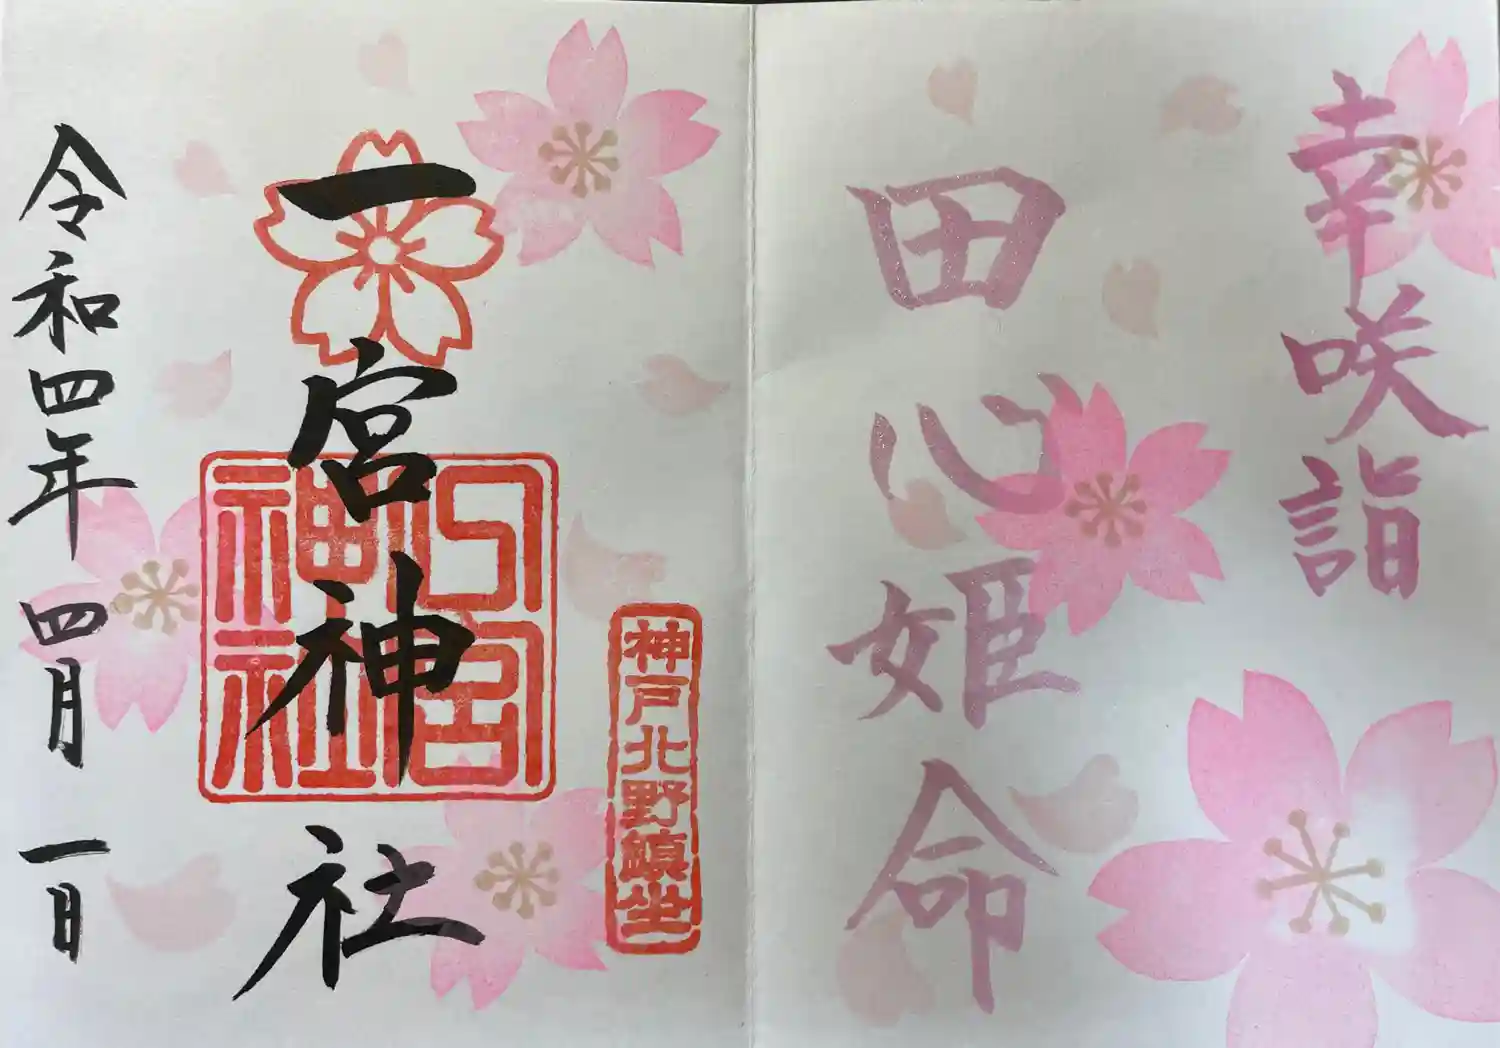 幸咲詣
田心姫命
神戸北野鎮坐
一宮神社
一宮神社
令和四年 四月 一日